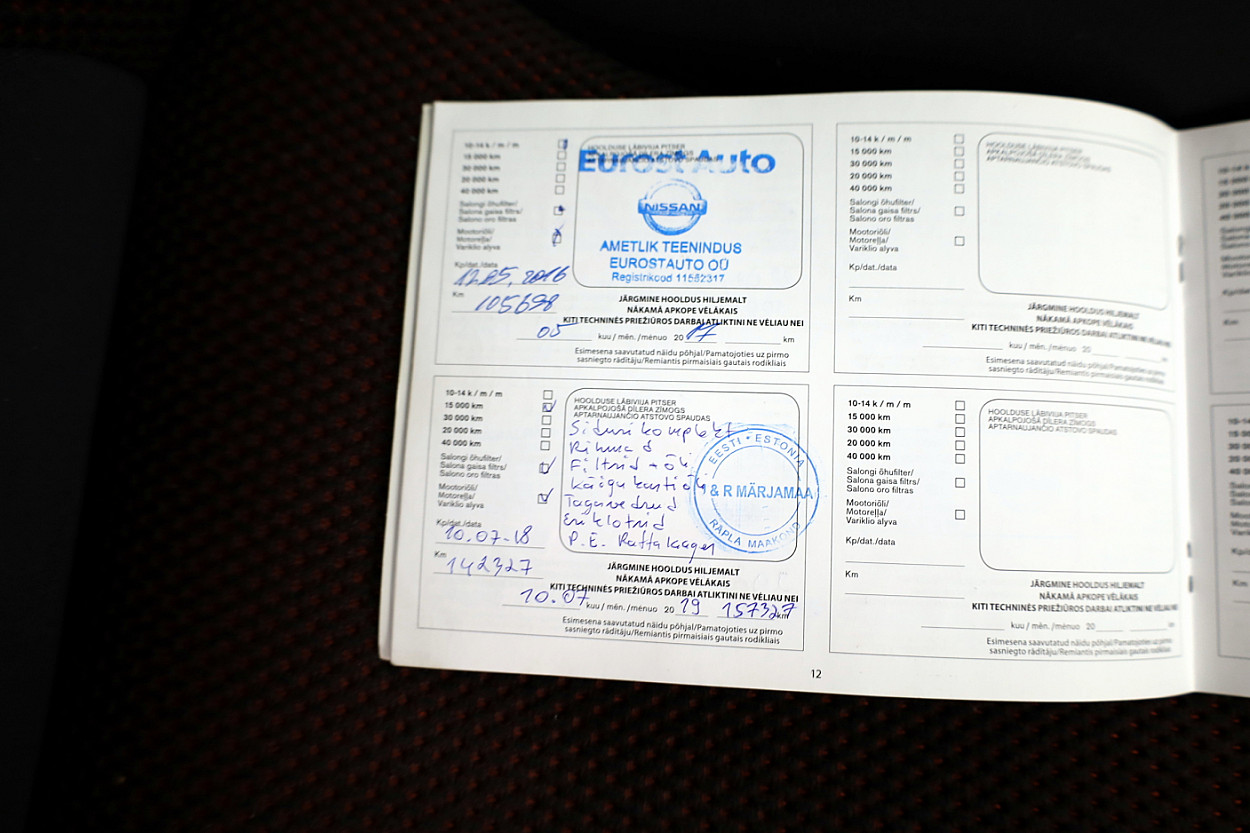 10-14 k / m / m
15 000 km
30 000 km
20 000 km
40 000 km
Salongi õhufilter/
Salona gaisa filtrs/
Salono oro filtras
Mootoriõli/
Motoreļļa/
Variklio alyva
Kp/dat./data
12.05.2016
Km
105698
HOOLDUSE LÄBIVIIJA PITSER
Eurost Auto
NISSAN
AMETLIK TEENINDUS
EUROSTAUTO OÜ
Registrikood 11582317
JÄRGMINE HOOLDUS HILJEMALT
NĀKAMĀ APKOPE VĒLĀKAIS
KITI TECHNINĖS PRIEŽIŪROS DARBAI ATLIKTINI NE VĖLIAU NEI
05 kuu / mēn. /mėnuo 20 17 km
Esimesena saavutatud näidu põhjal/Pamatojoties uz pirmo
sasniegto rādītāju/Remiantis pirmaisiais gautais rodikliais
10-14 k / m / m
15 000 km
30 000 km
20 000 km
40 000 km
Salongi õhufilter/
Salona gaisa filtrs/
Salono oro filtras
Mootoriõli/
Motoreļļa/
Variklio alyva
Kp/dat./data
10.07-18
Km
142327
HOOLDUSE LÄBIVIIJA PITSER
APKALPOJOŠĀ DĪLERA ZĪMOGS
APTARNAUJANČIO ATSTOVO SPAUDAS
Siduri komplekt
Rihmad
Filtrid + õli
Käigukastiõli
Tagavedrud
P.E. Rattalaager
EESTI • ESTONIA
& R MÄRJAMAA
RAPLA MAAKOND
JÄRGMINE HOOLDUS HILJEMALT
NĀKAMĀ APKOPE VĒLĀKAIS
KITI TECHNINĖS PRIEŽIŪROS DARBAI ATLIKTINI NE VĖLIAU NEI
10.07 kuu / mēn. /mėnuo 20 19 157327 km
Esimesena saavutatud näidu põhjal/Pamatojoties uz pirmo
sasniegto rādītāju/Remiantis pirmaisiais gautais rodikliais
10-14 k / m / m
15 000 km
30 000 km
20 000 km
40 000 km
Salongi õhufilter/
Salona gaisa filtrs/
Salono oro filtras
Mootoriõli/
Motoreļļa/
Variklio alyva
Kp/dat./data
Km
HOOLDUSE LÄBIVIIJA PITSER
APKALPOJOŠĀ DĪLERA ZĪMOGS
APTARNAUJANČIO ATSTOVO SPAUDAS
JÄRGMINE HOOLDUS HILJEMALT
NĀKAMĀ APKOPE VĒLĀKAIS
KITI TECHNINĖS PRIEŽIŪROS DARBAI ATLIKTINI NE VĖLIAU NEI
kuu / mēn. /mėnuo 20 km
Esimesena saavutatud näidu põhjal/Pamatojoties uz pirmo
sasniegto rādītāju/Remiantis pirmaisiais gautais rodikliais
10-14 k / m / m
15 000 km
30 000 km
20 000 km
40 000 km
Salongi õhufilter/
Salona gaisa filtrs/
Salono oro filtras
Mootoriõli/
Motoreļļa/
Variklio alyva
Kp./dat./data
Km
HOOLDUSE LÄBIVIIJA PITSER
APKALPOJOŠĀ DĪLERA ZĪMOGS
APTARNAUJANČIO ATSTOVO SPAUDAS
JÄRGMINE HOOLDUS HILJEMALT
NĀKAMĀ APKOPE VĒLĀKAIS
KITI TECHNINĖS PRIEŽIŪROS DARBAI ATLIKTINI NE VĖLIAU NEI
kuu / mēn. /mėnuo 20 km
Esimesena saavutatud näidu põhjal/Pamatojoties uz pirmo
sasniegto rādītāju/Remiantis pirmaisiais gautais rodikliais
12